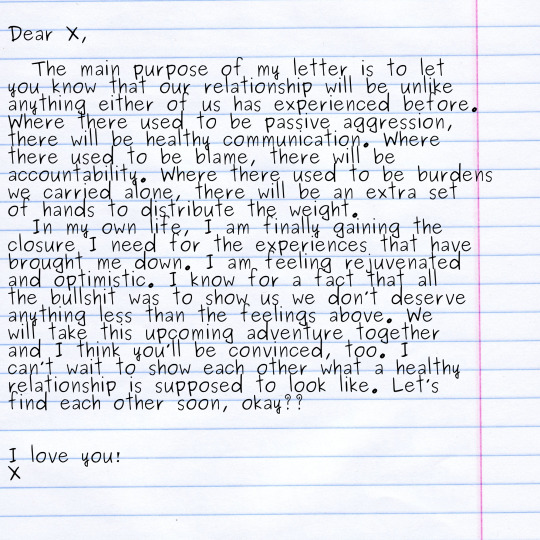 Dear X,
The main purpose of my letter is to let
you know that our relationship will be unlike
anything either of us has experienced before.
Where there used to be passive aggression,
there will be healthy communication. Where
there used to be blame, there will be
accountability. Where there used to be burdens
we carried alone, there will be an extra set
of hands to distribute the weight.
In my own life, I am finally gaining the
closure I need for the experiences that have
brought me down. I am feeling rejuvenated
and optimistic. I know for a fact that all
the bullshit was to show us we don't deserve
anything less than the feelings above. We
will take this upcoming adventure together
and I think you'll be convinced, too. I
can't wait to show each other what a healthy
relationship is supposed to look like. Let's
find each other soon, okay??
I love you!
X